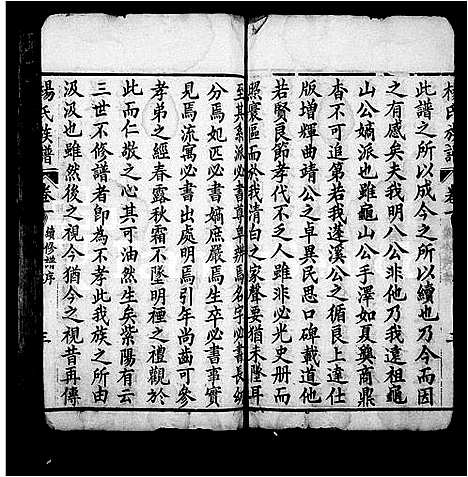 楊氏族譜 卷一
此譜之所以成今之所以續也乃今而因
之有感矣夫我明八公非他乃我遠祖龜
山公嫡派也雖龜山公手澤如夏奠商鼎
杳不可追第若我蓬溪公之循良上達仕
版增輝曲靖公之卓異民思口碑載道他
若賢良節孝代不乏人雖非必光史冊而
照寰區而於我清白之家聲要猶未墜耳
至其系派必書尊卑辨焉名字必書長幼
分焉妃匹必書嫡庶嚴焉生卒必書事實
見焉流寓必書出處明焉引年尚齒可參
孝弟之經春露秋霜不墜明禋之禮觀於
此而仁敬之心可油然生矣紫陽有云
三世不修譜者卽為不孝我族之所由
汲汲也雖然後之視今猶今之視昔再傳
楊氏族譜 卷一 續修譜序 三